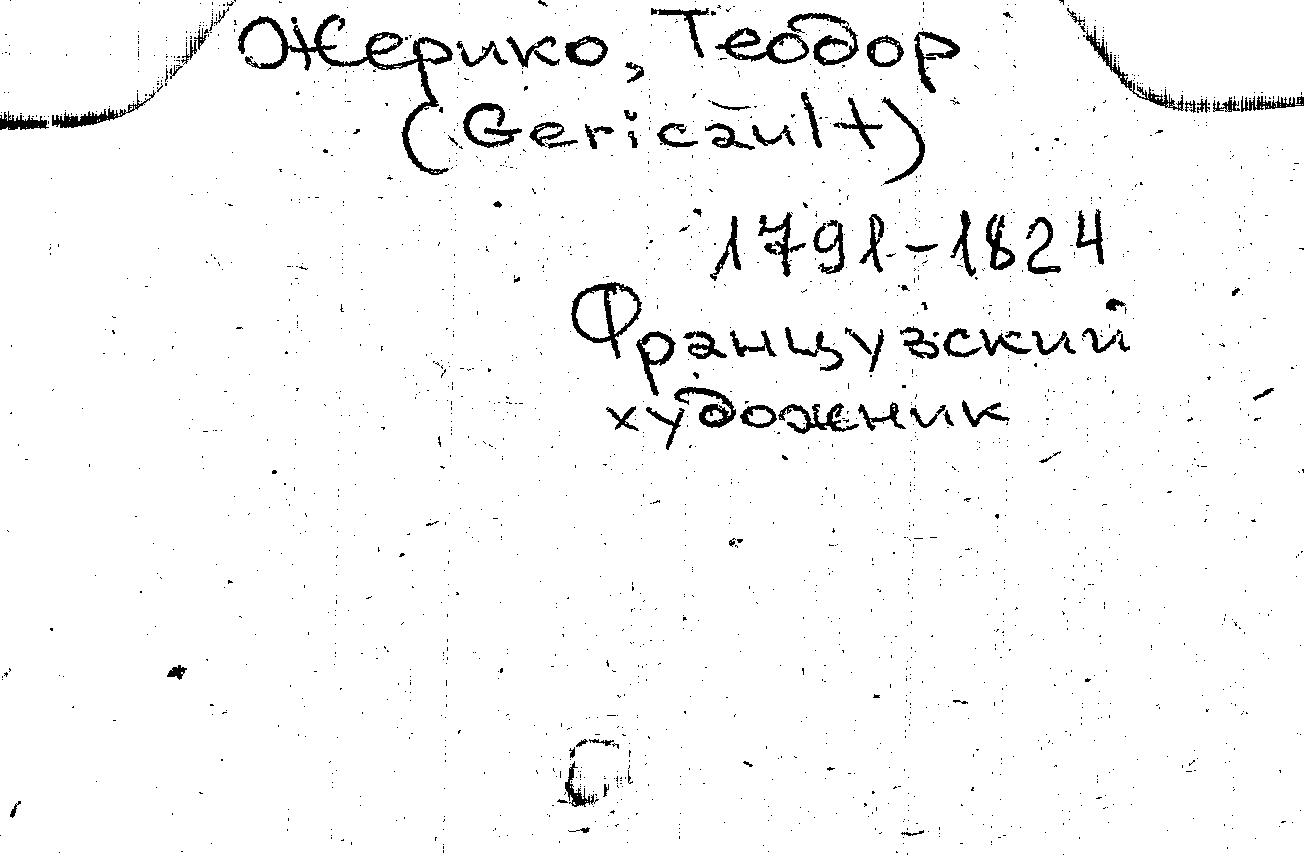 Жерико, Теодор
(Gericault)
1791-1824
Французский
художник